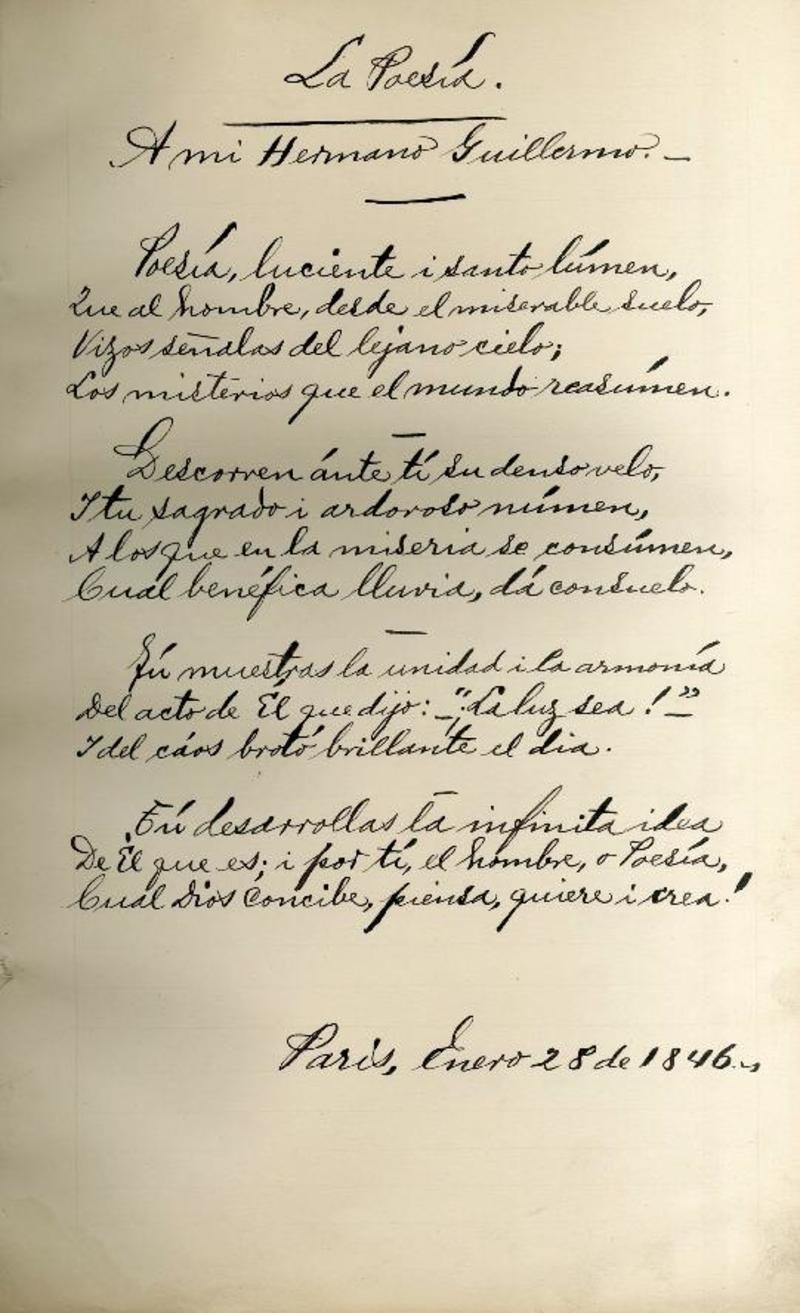 La Poesía.
A mi Hermano Guillermo. —
Poesía, luciente i santo lúmen,
Que al hombre, desde el miserable suelo,
Vizos señalas del lejano cielo;
Los misterios que el mundo reasúmen.
Descorren ánte tí su denso velo,
I tu sagrado i ardoroso númen,
A los que en la miseria se consúmen,
Cual benéfica lluvia, dá consuelo.
Tú muestras la unidad i la armonía
Del acto de Él que dijo: — "¡La luz sea!" —
I del cáos brotó brillante el dia.
Tú desarrollas la infinita idea
De Él que es; i por tí, el hombre, o Poesía,
Cual Dios concibe, piensa, quiere i crea!
Paris, Enero 28 de 1846.